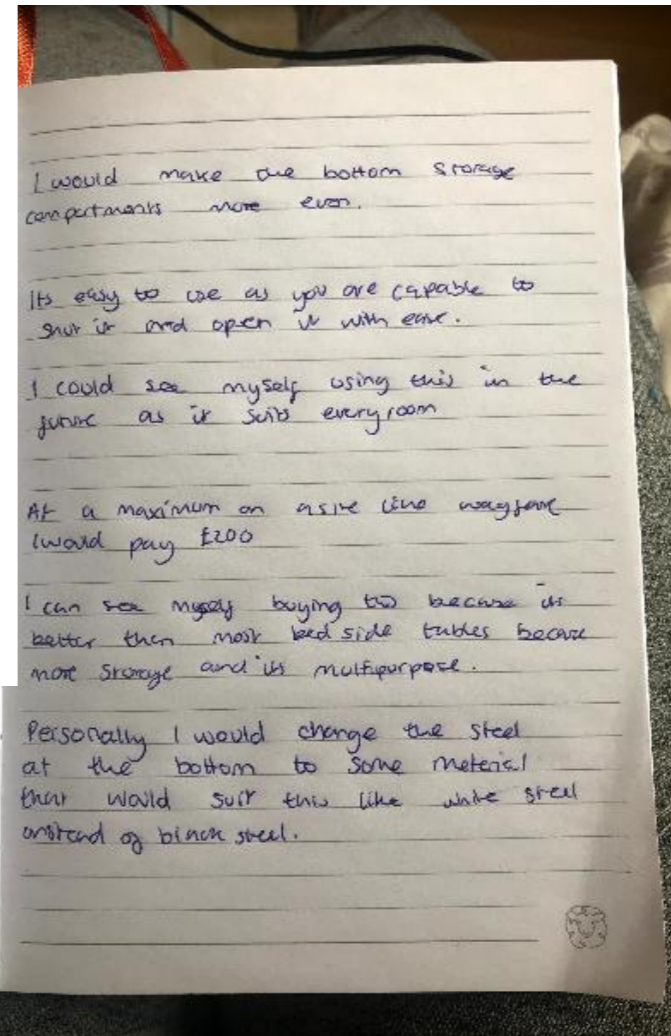 I would make the bottom storage
compartments more even.
Its easy to use as you are capable to
shut it and open it with ease.
I could see myself using this in the
future as it suits every room
At a maximum on a site like wayfair
I would pay £200
I can see myself buying this because its
better then most bed side tables because
more storage and its multipurpose.
Personally I would change the steel
at the bottom to some meterial
that would suit this like white steel
instead of black steel.